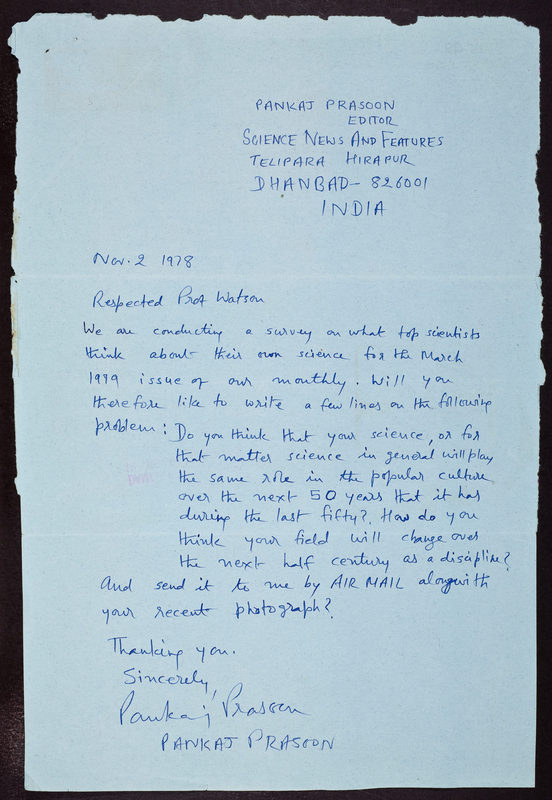 PANKAJ PRASOON
EDITOR
SCIENCE NEWS AND FEATURES
TELIPARA HIRAPUR
DHANBAD- 826001
INDIA
Nov. 2 1978
Respected Prof Watson
We are conducting a survey on what top scientists
think about their own science for the March
1979 issue of our monthly. Will you
therefore like to write a few lines on the following
problem: Do you think that your science, or for
that matter science in general will play
the same role in the popular culture
over the next 50 years that it has
during the last fifty? How do you
think your field will change over
the next half century as a discipline?
And send it to me by AIR MAIL alongwith
your recent photograph?
Thanking you.
Sincerely,
Pankaj Prasoon
PANKAJ PRASOON